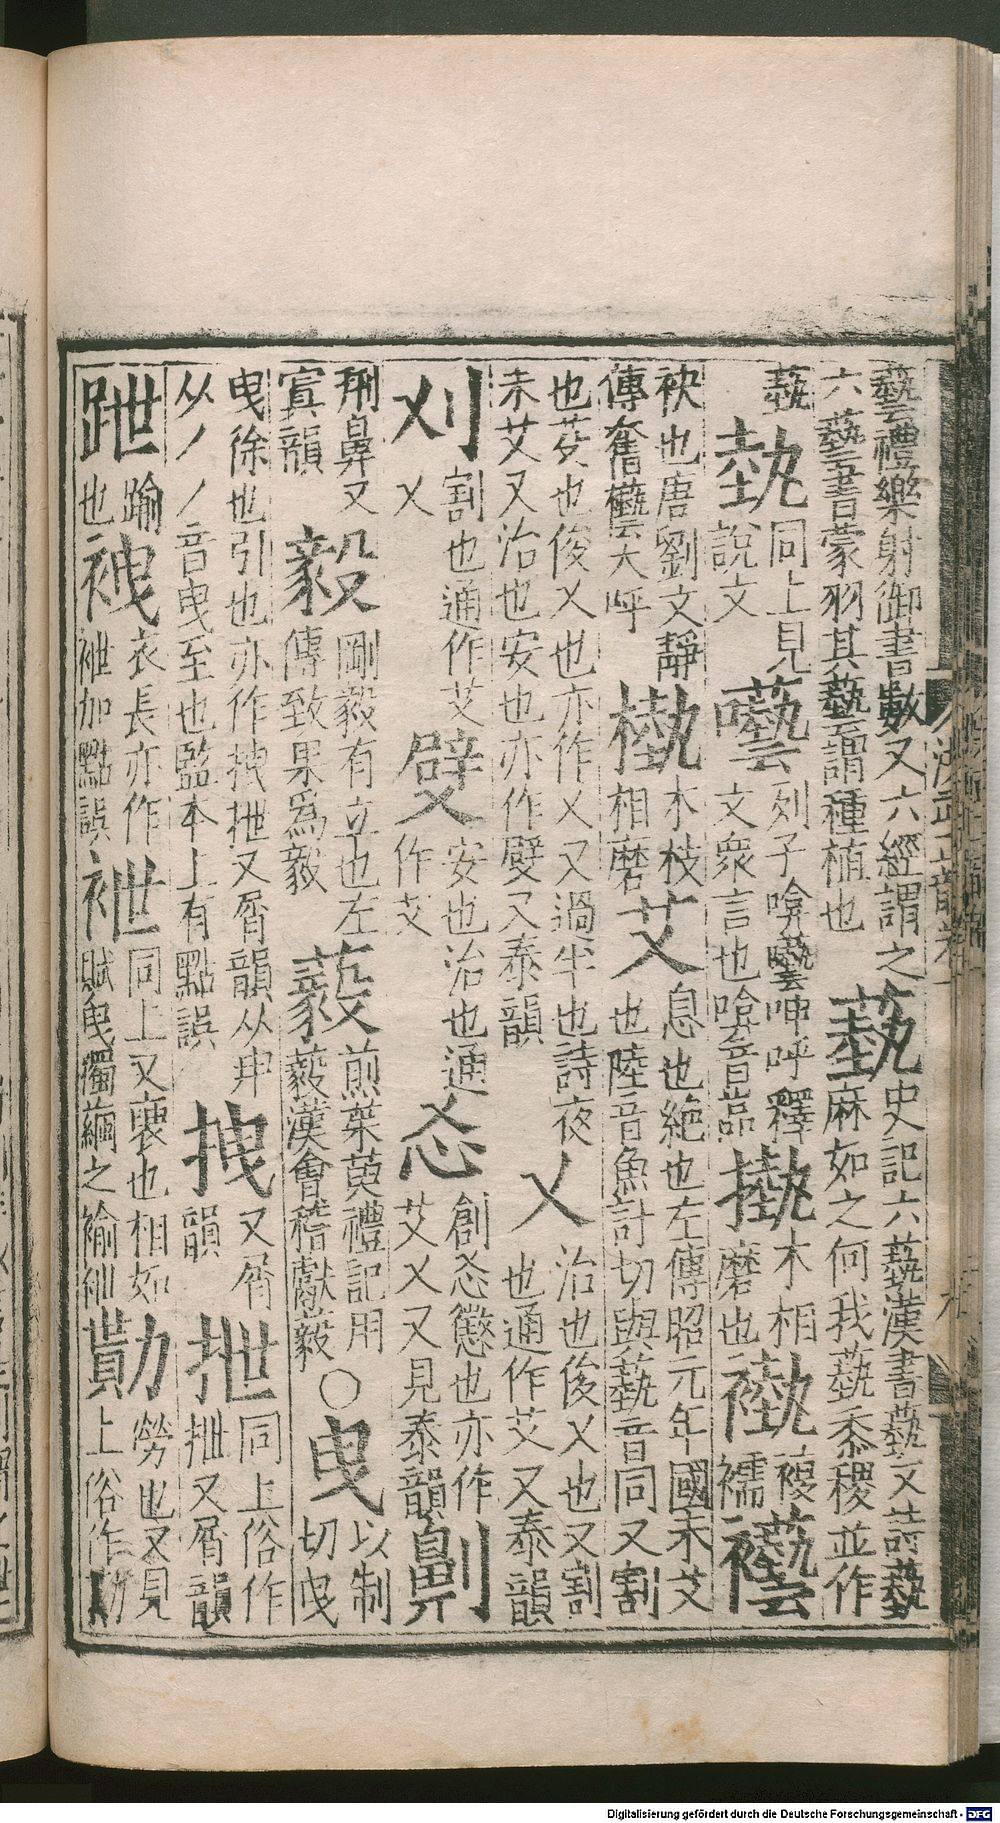 藝禮樂射御書數又六經謂之
六藝書蒙羽其藝謂種植也
蓺
史記六蓺漢書藝文詩藝
麻如之何我蓺黍稷並作
蓺
埶
同上見
說文
囈
列子唅囈呻呼釋
文衆言也唅音嵓
㩘
木相
磨也
褹
複
襦
襼
袂也唐劉文靜
傳奮襼大呼
槸
木枝
相磨
艾
息也絶也左傳昭元年國未艾
也陸音魚計切與蓺音同又割
也芟也俊乂也亦作乂又過半也詩夜
未艾又治也安也亦作嬖又泰韻
乂
治也俊乂也又割
也通作艾又泰韻
刈
割也通作艾
乂
嬖
安也治也通
作艾
忞
創忞懲也亦作
艾乂又見泰韻
劓
刑鼻又
寘韻
毅
剛毅有立也左
傳致果爲毅
藙
煎茱萸禮記用
藙漢會稽獻藙
○
曳
以制
切曳
曳徐也引也亦作拽抴又屑韻从申
从丿丿音曳至也監本上有點誤
拽
又屑
韻
抴
同上俗作
抴又屑韻
跇
踰
也
袣
衣長亦作
袣加點誤
袣
同上又裵也相如
賦曳獨繭之褕袣
勩
勞也又見
上俗作勩
洪武正韻卷十
Digitalisierung gefördert durch die Deutsche Forschungsgemeinschaft - DFG